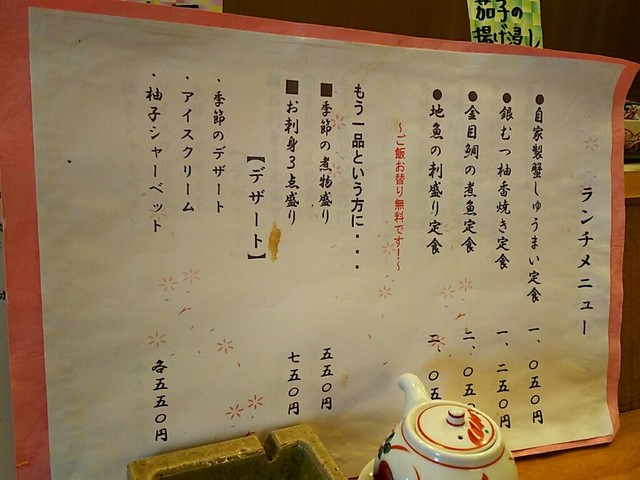 茄子の
揚げ浸し
ランチメニュー
●自家製蟹しゅうまい定食 一、〇五〇円
●銀むつ柚香焼き定食 一、二五〇円
●金目鯛の煮魚定食 二、〇五〇
●地魚の刺盛り定食 二、〇五
～ご飯お替り無料です！～
もう一品という方に・・・
■季節の煮物盛り 五五〇円
■お刺身３点盛り 七五〇円
【デザート】
・季節のデザート
・アイスクリーム
・柚子シャーベット 各五五〇円